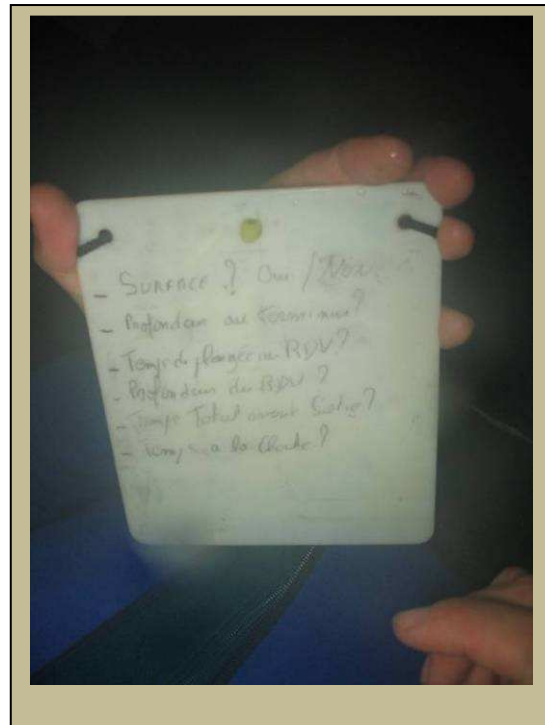 - SURFACE ? Oui / Non
- Profondeur au Terminus ?
- Temps de plongée au RDV ?
- Profondeur du RDV ?
- Temps Total avant Sortie ?
- Temps à la Cloche ?